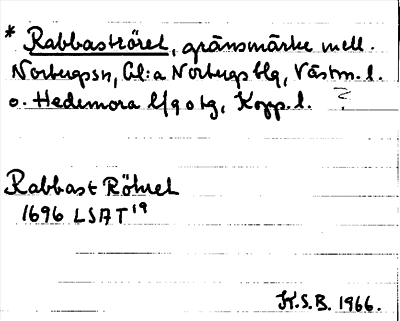 * Rabbaströret, gränsmärke mell.
Norbergssn, Gl:a Norbergs blg, Västm. l.
o. Hedemora l/g o tg, Kopp. l. ?
Rabbast Röhret
1696 LSA T 19
K.S.B. 1966.